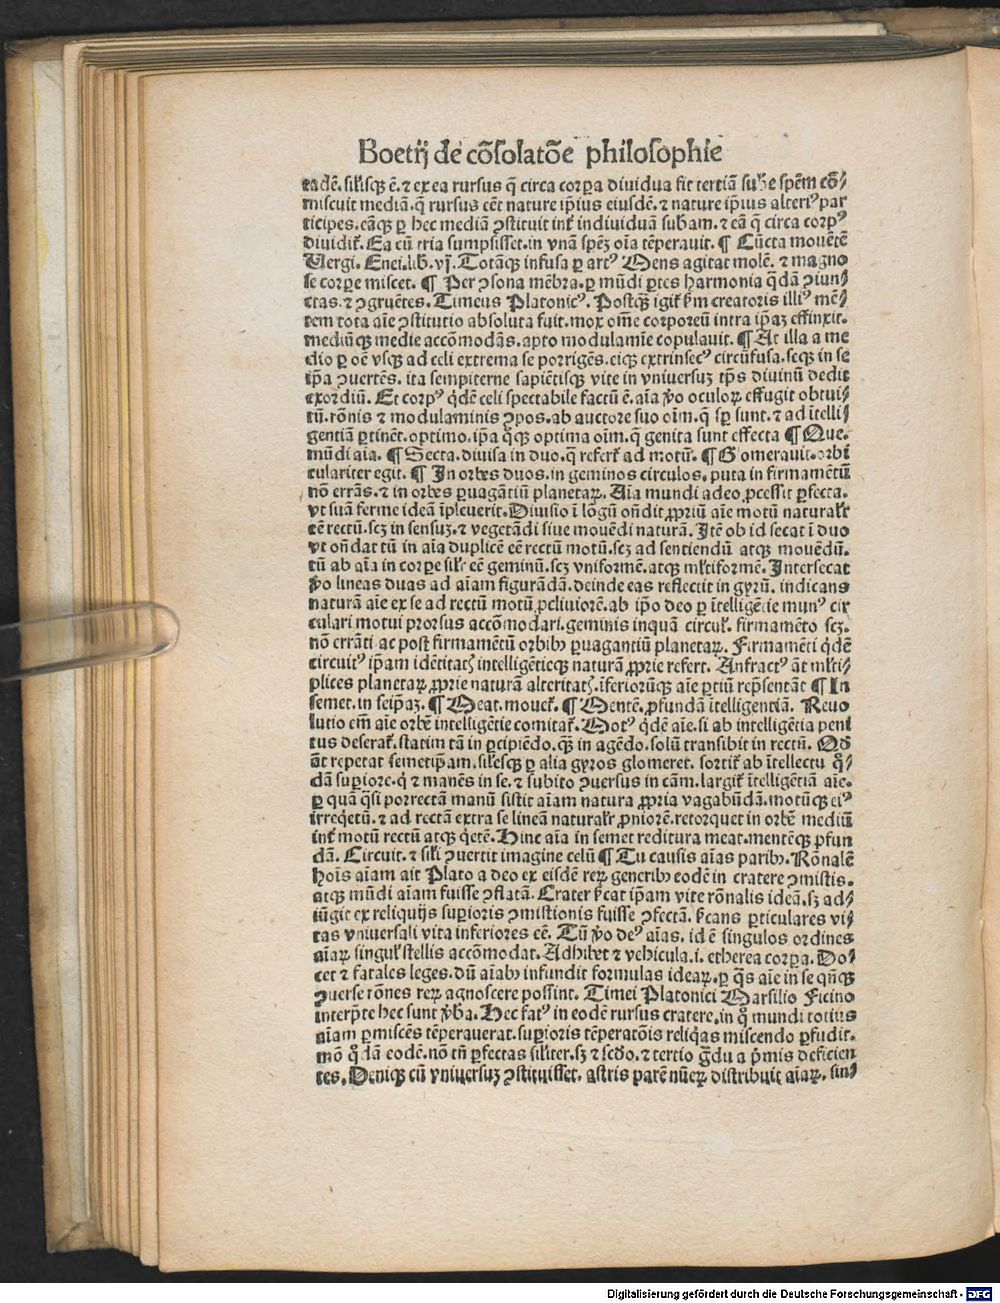 Boetij de cõsolatõe philosophie
eadẽ. silisqꝫ ẽ. ⁊ ex ea rursus q̃ circa corpa diuidua fit tertiã sube spẽm cõ/
miscuit mediã. q̃ rursus cẽt nature ip̃ius eiusdẽ. ⁊ nature ip̃ius alteriꝰ par
ticipes. eãqꝫ ꝑ hec mediã ꝯstituit int̃ indiuiduã subam. ⁊ eã q̃ circa corpꝰ
diuidit̃. Ea cũ tria sumpsisset. in vnã spẽꝫ oĩa tẽperauit. ¶ Cũcta mouẽtẽ
Vergi. Enei. lib. vj. Totãqꝫ infusa ꝑ artꝰ Mens agitat molẽ. ⁊ magno
se corpe miscet. ¶ Per ꝯsona mẽbra. ꝑ mũdi ꝑtes harmonia q̃dã ꝯiun/
ctas. ⁊ ꝯgruẽtes. Timeus Platonicꝰ. Postqꝫ igit̃ ẜm creatoris illiꝰ mẽ/
tem tota aĩe ꝯstitutio absoluta fuit. mox om̃e corporeũ intra ip̃aꝫ effinxit.
mediũqꝫ medie accõmodãs. apto modulamĩe copulauit. ¶ At illa a me
dio ꝑ oẽ vsqꝫ ad celi extrema se porrigẽs. eiqꝫ extrinsecꝰ circũfusa. seqꝫ in se
ip̃a ꝯuertẽs. ita sempiterne sapiẽtisqꝫ vite in vniuersuꝫ tp̃s diuinũ dedit
exordiũ. Et corpꝰ q̃dẽ celi spectabile factũ ẽ. aĩa ꝟo oculoꝝ effugit obtui/
tũ. rõnis ⁊ modulaminis ꝯpos. ab auctore suo oĩm. q̃ sꝑ sunt. ⁊ ad ĩtelli/
gentiã ꝑtinẽt. optimo. ip̃a q̃qꝫ optima oĩm. q̃ genita sunt effecta ¶ Que.
mũdi aĩa. ¶ Secta. diuisa in duo. q̃ refert̃ ad motũ. ¶ Glomerauit. orbi
culariter egit. ¶ In orbes duos. in geminos circulos. puta in firmamẽtũ
nõ errãs. ⁊ in orbes ꝑuagãtiũ planetaꝝ. Aĩa mundi adeo ꝓcessit ꝑfecta.
vt suã ferme ideã ĩpleuerit. Diuisio ĩ lõgũ oñdit ꝓpriũ aĩe motũ naturalr̃
eẽ rectũ. scꝫ in sensuꝫ. ⁊ vegetãdi siue mouẽdi naturã. Itẽ ob id secat ĩ duo
vt oñdat tũ in aĩa duplicẽ eẽ rectũ motũ. scꝫ ad sentiendũ atqꝫ mouẽdũ.
tũ ab aĩa in corpe silr̃ eẽ geminũ. scꝫ vniformẽ. atqꝫ ml̃tiformẽ. Intersecat
ꝟo lineas duas ad aĩam figurãdã. deinde eas reflectit in gyrũ. indicans
naturã aĩe ex se ad rectũ motũ ꝓcliuiorẽ. ab ip̃o deo ꝑ ĩtelligẽtie munꝰ cir
culari motui prorsus accõmodari. geminis inquã circul̃. firmamẽto scꝫ.
nõ errãti ac post firmamẽtũ orbibꝰ ꝑuagantiũ planetaꝝ. Firmamẽti q̃dẽ
circuitꝰ ip̃am idẽtitatꝭ intelligẽtieqꝫ naturã ꝓprie refert. Anfractꝰ ãt ml̃ti/
plices planetaꝝ ꝓprie naturã alteritatꝭ. ĩferiorũqꝫ aĩe ꝑtiũ rep̃sentãt ¶ In
semet. in seip̃aꝫ. ¶ Meat. mouet̃. ¶ Mentẽ. ꝓfundã ĩtelligentiã. Reuo
lutio em̃ aĩe orbẽ intelligẽtie comitat̃. Motꝰ q̃dẽ aĩe. si ab intelligẽtia peni
tus deserat̃. statim tã in ꝑcipiẽdo. qꝫ in agẽdo. solũ transibit in rectũ. Qd̃
ãt repetat semetip̃am. silẽsqꝫ ꝑ alia gyros glomeret. sortit̃ ab ĩtellectu q̊/
dã suꝑiore. q̃ ⁊ manẽs in se. ⁊ subito ꝯuersus in eãm. largit̃ ĩtelligẽtiã aĩe.
ꝑ quã q̃si porrectã manũ sistit aĩam natura ꝓpria vagabũdã. motũqꝫ eiꝰ
irreq̃etũ. ⁊ ad rectã extra se lineã naturalr̃ ꝓniorẽ. retorquet in orbẽ mediũ
int̃ motũ rectũ atqꝫ q̃etẽ. Hinc aĩa in semet reditura meat. mentẽqꝫ ꝓfun
dã. Circuit. ⁊ sil̃i ꝯuertit imagine celũ ¶ Tu causis aĩas paribꝰ. Rõnalẽ
hoĩs aĩam ait Plato a deo ex eisdẽ reꝝ generibꝰ eodẽ in cratere ꝯmistis.
atqꝫ mũdi aĩam fuisse ꝯflatã. Crater ẜcat ip̃am vite rõnalis ideã. sꝫ ad/
iũgit ex reliquijs suꝑioris ꝯmistionis fuisse ꝯfectã. ẜcans ꝑticulares vi/
tas vniuersali vita inferiores eẽ. Tũ ꝟo deꝰ aĩas. id ẽ singulos ordines
aĩaꝝ singul̃ stellis accõmodat. Adhibet ⁊ vehicula. i. etherea corpa. Do/
cet ⁊ fatales leges. dũ aĩabꝰ infundit formulas ideaꝝ. ꝑ q̃s aĩe in se qñqꝫ
ꝯuerse rõnes reꝝ agnoscere possint. Timei Platonici Marsilio Ficino
interp̃te hec sunt ꝟba. Hec fatꝰ in eodẽ rursus cratere. in q̊ mundi totius
aĩam ꝑmiscẽs tẽperauerat. suꝑioris tẽperatõis reliq̃as miscendo ꝑfudit.
mõ q̊dã eodẽ. nõ tñ ꝑfectas silĩter. sꝫ ⁊ scd̃o. ⁊ tertio g̃du a p̃mis deficien
tes. Deniqꝫ cũ vniuersuꝫ ꝯstituisset. astris parẽ nũeꝝ distribuit aĩaꝝ. sin/
Digitalisierung gefördert durch die Deutsche Forschungsgemeinschaft - DFG